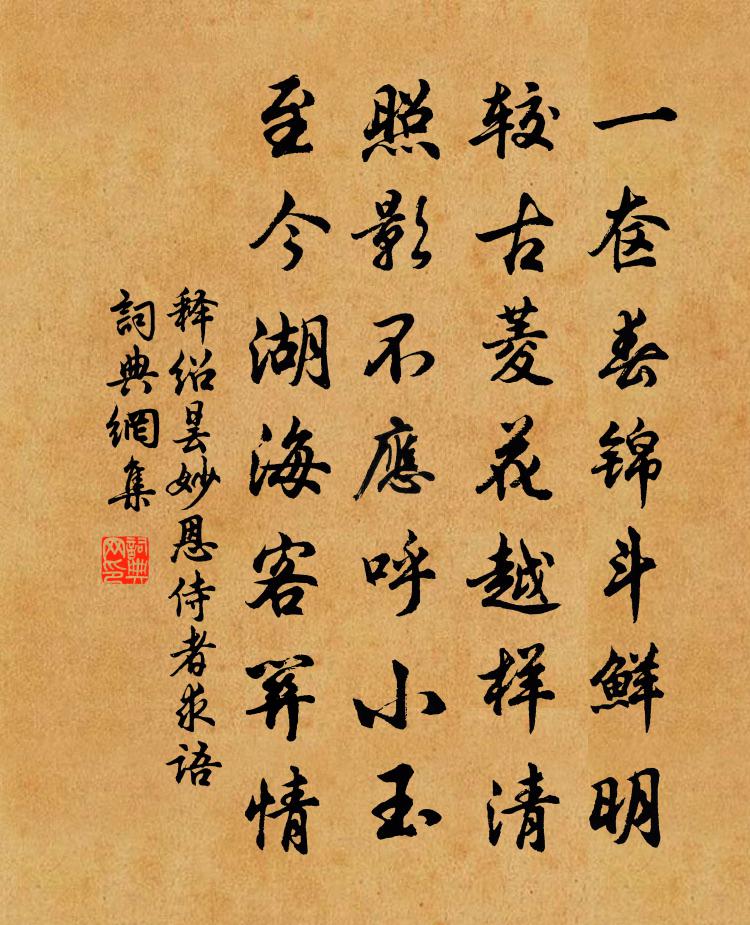 一奁春锦斗鲜明
较古菱花越样清
照影不應呼小玉
至今湖海客関情
释绍昙妙恩侍者求语
詞典網集
詞典网印